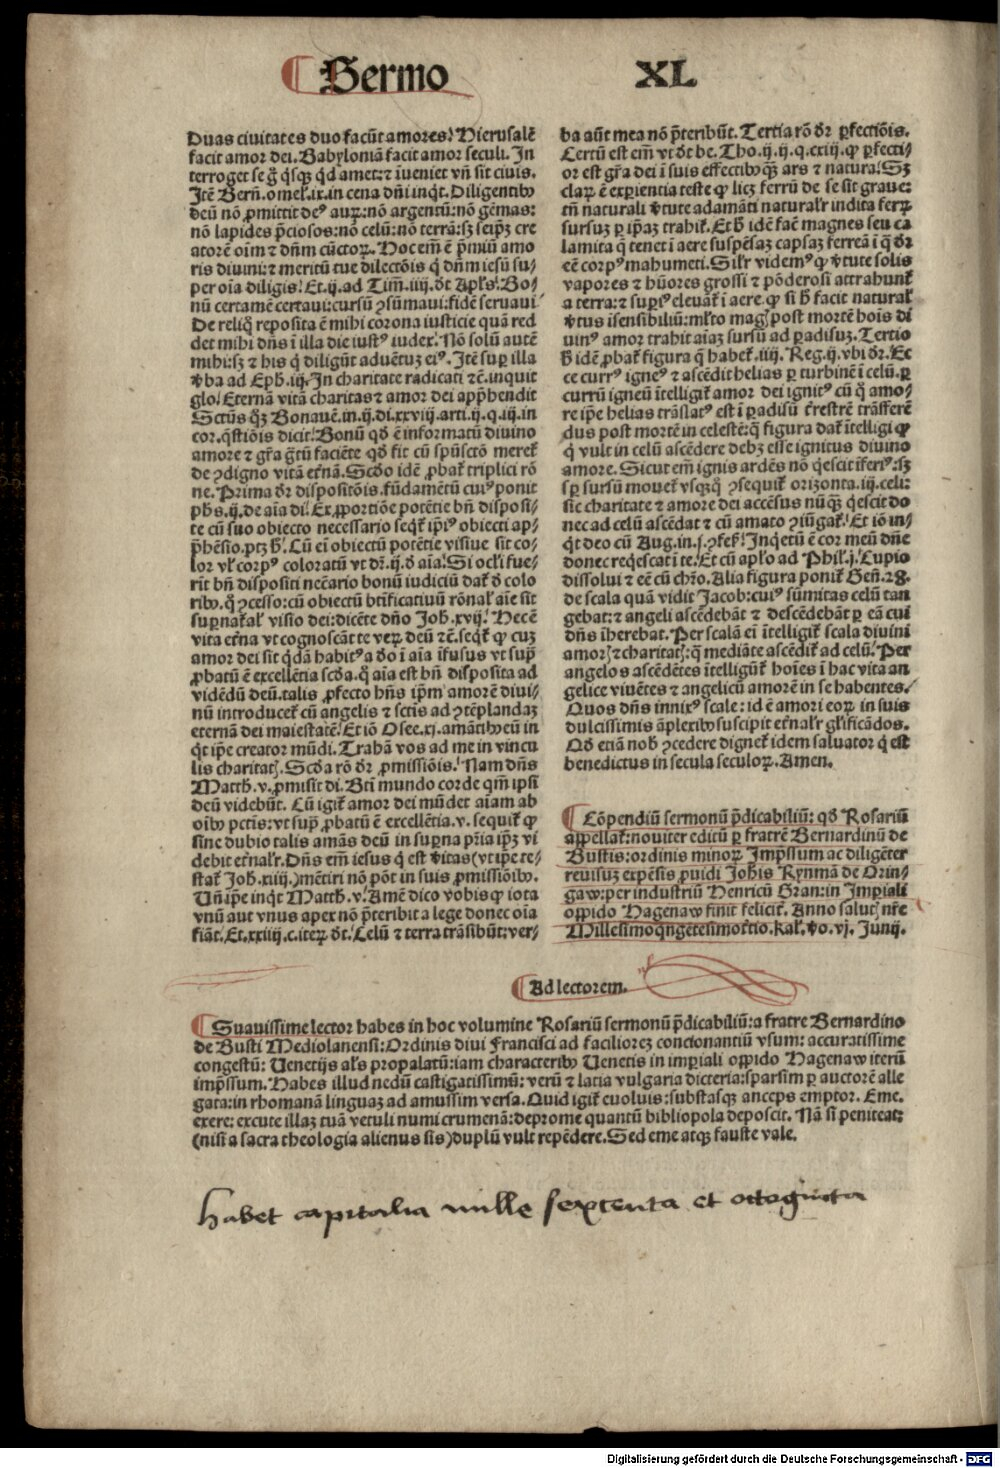 Sermo XL
Duas ciuitates duo facũt amores. Hierusalẽ
facit amor dei. Babyloniã facit amor seculi. In
terroget se g̃ q̃sq̃ qd amet: ⁊ ĩueniet vñ sit ciuis.
Itẽ Bern̄. omel. ix. in cena dñi inq̃t. Diligentibꝰ
deũ nõ ꝓmittit deꝰ auꝝ: nõ argentũ: nõ gẽmas:
nõ lapides p̃ciosos: nõ celũ: nõ terrã: sꝫ seipꝫ cre
atorẽ oĩm ⁊ dñm cũctoꝝ. Hoc em̃ ẽ p̃miũ amo
ris diuini: ⁊ meritũ tue dilectõis q̃ dñm iesũ su/
per oĩa diligis. Et. ij. ad Tim̃. iiij. d̃t Apl's. Bo/
nũ certamẽ certaui: cursũ ꝯsũmaui: fidẽ seruaui
De reliq̃ reposita ẽ mihi corona iusticie quã red
det mihi dñs ĩ illa die iustꝰ iudex. Nõ solũ autẽ
mihi: sꝫ ⁊ his q̃ diligũt aduẽtuꝫ eiꝰ. Itẽ suꝑ illa
v̾ba ad Eph. iij. In charitate radicati ⁊c̃. inquit
glo. Eternã vitã charitas ⁊ amor dei app̃hendit
Sctũs q̃ꝫ Bonauẽ. in. ij. di. xxvij. arti. ij. q. iij. in
cor. q̃stiõis dicit. Bonũ qd̃ ẽ informatũ diuino
amore ⁊ gr̃a g̃tũ faciẽte qd̃ fit cũ spũscto meret̃
de ꝯdigno vitã et̃nã. Scd̃o idẽ ꝓbat̃ triplici rõ
ne. Prima d̃r dispositõis. fũdamẽtũ cuiꝰ ponit
ph̃s. ij. de aĩa di. Ex ꝓportiõe potẽtie bñ disposi/
te cũ suo obiecto necessario seq̃t̃ ip̃iꝰ obiecti ap/
p̃hẽsio. ptꝫ h̃. Cũ eĩ obiectũ potẽtie visiue sit co/
lor vl' corpꝰ coloratũ vt d̃r. ij. d̃ aĩa. Si ocl'i fue/
rĩt bñ dispositi nec̃ario bonũ iudiciũ dat̃ d̃ colo
ribꝰ. q̃ ꝯcesso: cũ obiectũ bt̃ificatiuũ rõnal' aĩe sit
suꝑnat̃al' visio dei: dicẽte dño Joh. xvij. Hec ẽ
vita et̃na vt cognoscãt te veꝝ deũ ⁊c̃. seq̃t̃ ꝙ cuꝫ
amor dei sit q̃dã habitꝰ a d̃o ĩ aĩa ĩfusus vt sup̃
ꝓbatũ ẽ excellẽtia scd̃a. q̃ aĩa est bñ disposita ad
vidẽdũ deũ. talis ꝓfecto hñs ip̃m amorẽ diui/
nũ introducet̃ cũ angelis ⁊ sctis ad ꝯtẽplandaꝫ
eternã dei maiestatẽ. Et iõ Osee. xj. amãtibꝰ eũ in
q̃t ip̃e creator mũdi. Trahã vos ad me in vincu
lis charitatꝭ. Scd̃a rõ d̃r ꝓmissiõis. Nam dñs
Matth. v. ꝓmisit di. Bt̃i mundo corde qm̃ ipsi
deũ videbũt. Cũ igit̃ amor dei mũdet aĩam ab
oĩbꝰ pctĩs: vt sup̃ ꝓbatũ ẽ excellẽtia. v. sequit̃ ꝙ
sine dubio talis amãs deũ in suꝑna p̃ria ip̃ꝫ vi
debit et̃nal'r. Dñs em̃ iesus q̃ est v̾itas (vt ip̃e te/
stat̃ Joh. xiiij.) mẽtiri nõ põt in suis ꝓmissiõibꝰ.
Vñ ip̃e inq̃t Matth. v. Amẽ dico vobis ꝙ iota
vnũ aut vnus apex nõ p̃teribit a lege donec oĩa
fiãt. Et. xxiiij. c. iteꝝ d̃t. Celũ ⁊ terra trãsibũt: ver/
ba aũt mea nõ p̃teribũt. Tertia rõ d̃r ꝑfectiõis.
Certũ est em̃ vt d̃t be. Tho. ij. ij. q. cxiij. ꝙ ꝑfecti/
or est gr̃a dei ĩ suis effectibꝰ q̃ꝫ ars ⁊ natura. Sꝫ
claꝝ ẽ exꝑientia teste ꝙ licꝫ ferrũ de se sit graue:
tñ naturali v̾tute adamãti naturalr̃ indita ferꝝ
sursuꝫ ꝑ ip̃aꝫ trahit̃. Et h̃ idẽ fac̃ magnes seu ca
lamita q̃ tenet ĩ aere suspẽsaꝫ capsaꝫ ferreã ĩ q̃ d̃r
eẽ corpꝰ mahumeti. Sil'r videmꝰ ꝙ v̾tute solis
vapores ⁊ hũores grossi ⁊ põderosi attrahunt̃
a terra: ⁊ suꝑiꝰ eleuãt̃ ĩ aere. ꝙ si h̃ facit natural'
v̾tus ĩsensibiliũ: ml'to magꝭ post mortẽ hoĩs di
uinꝰ amor trahit aĩaꝫ sursũ ad ꝑadisuꝫ. Tertio
h̃ idẽ ꝓbat̃ figura q̃ habet̃. iiij. Reg. ij. vbi d̃r. Ec
ce currꝰ igneꝰ ⁊ ascẽdit helias ꝑ turbinẽ ĩ celũ. ꝑ
currũ igneũ ĩtelligit̃ amor dei ignitꝰ cũ q̃ amo/
re ip̃e helias trãslatꝰ est ĩ ꝑadisũ t̃restrẽ trãsferẽ
dus post mortẽ in celestẽ: q̃ figura dat̃ ĩtelligi ꝙ
q̃ vult in celũ ascẽdere debꝫ esse ignitus diuino
amore. Sicut em̃ ignis ardẽs nõ q̃escit ĩferiꝰ: sꝫ
sꝑ sursũ mouet̃ vsqꝫ q̃ ꝯsequit̃ orizonta. iij. celi:
sic charitate ⁊ amore dei accẽsus nũq̃ꝫ q̃escit do
nec ad celũ ascẽdat ⁊ cũ amato ꝯiũgat̃. Et iõ in/
q̃t deo cũ Aug. in. j. ꝯfes̃. Inq̃etũ ẽ cor meũ dñe
donec req̃escat ĩ te. Et cũ apl'o ad Phil'. j. Cupio
dissolui ⁊ eẽ cũ chr̃o. Alia figura ponit̃ Gen̄. 28.
de scala quã vidit Jacob: cuiꝰ sũmitas celũ tan
gebat: ⁊ angeli ascẽdebãt ⁊ descẽdebãt ꝑ eã cui
dñs ĩherebat. Per scalã eĩ ĩtelligit̃ scala diuini
amorꝭ ⁊ charitatꝭ: q̃ mediãte ascẽdit̃ ad celũ. Per
angelos ascẽdẽtes ĩtelligũt̃ hoĩes ĩ hac vita an
gelice viuẽtes ⁊ angelicũ amorẽ in se habentes.
Quos dñs innixꝰ scale: id ẽ amori eoꝝ in suis
dulcissimis ãplexibꝰ suscipit et̃nal'r gl'ificãdos.
Qd̃ etiã nob̃ ꝯcedere dignet̃ idem saluator q̃ est
benedictus in secula seculoꝝ. Amen.
Cõpendiũ sermonũ p̃dicabiliũ: qd̃ Rosariũ
appellat̃: nouiter editũ ꝑ fratrẽ Bernardinũ de
Bustis: ordinis minoꝝ Imp̃ssum ac diligẽter
reuisuꝫ expẽsis ꝓuidi Joh̃is Rynmã de Orin/
gaw: per industriũ Henricũ Gran: in Imꝑiali
oppido Hagenaw finit felicit̃. Anno salutꝭ nr̃e
Millesimoq̃ngẽtesimot̃tio. kal'. v̾o. vj. Junij.
Ad lectorem.
Suauissime lector habes in hoc volumine Rosariũ sermonũ p̃dicabiliũ: a fratre Bernardino
de Busti Mediolanensi: Ordinis diui Francisci ad facilioreꝫ concionantiũ vsum: accuratissime
congestũ: Venetijs al's propalatũ: iam characteribꝰ Venetis in imꝑiali oppido Hagenaw iterũ
imp̃ssum. Habes illud nedũ castigatissimũ: verũ ⁊ latia vulgaria dicteria: sparsim ꝑ auctorẽ alle
gata: in rhomanã linguaꝫ ad amussim versa. Quid igit̃ euoluis: substasqꝫ anceps emptor. Eme.
exere: excute illaꝫ tuã vetuli numi crumenã: deprome quantũ bibliopola deposcit. Nã si peniteat:
(nisi a sacra theologia alienus sis) duplũ vult repẽdere. Sed eme atqꝫ fauste vale.
habet capitalia mille sexcenta et octoginta
Digitalisierung gefördert durch die Deutsche Forschungsgemeinschaft - DFG